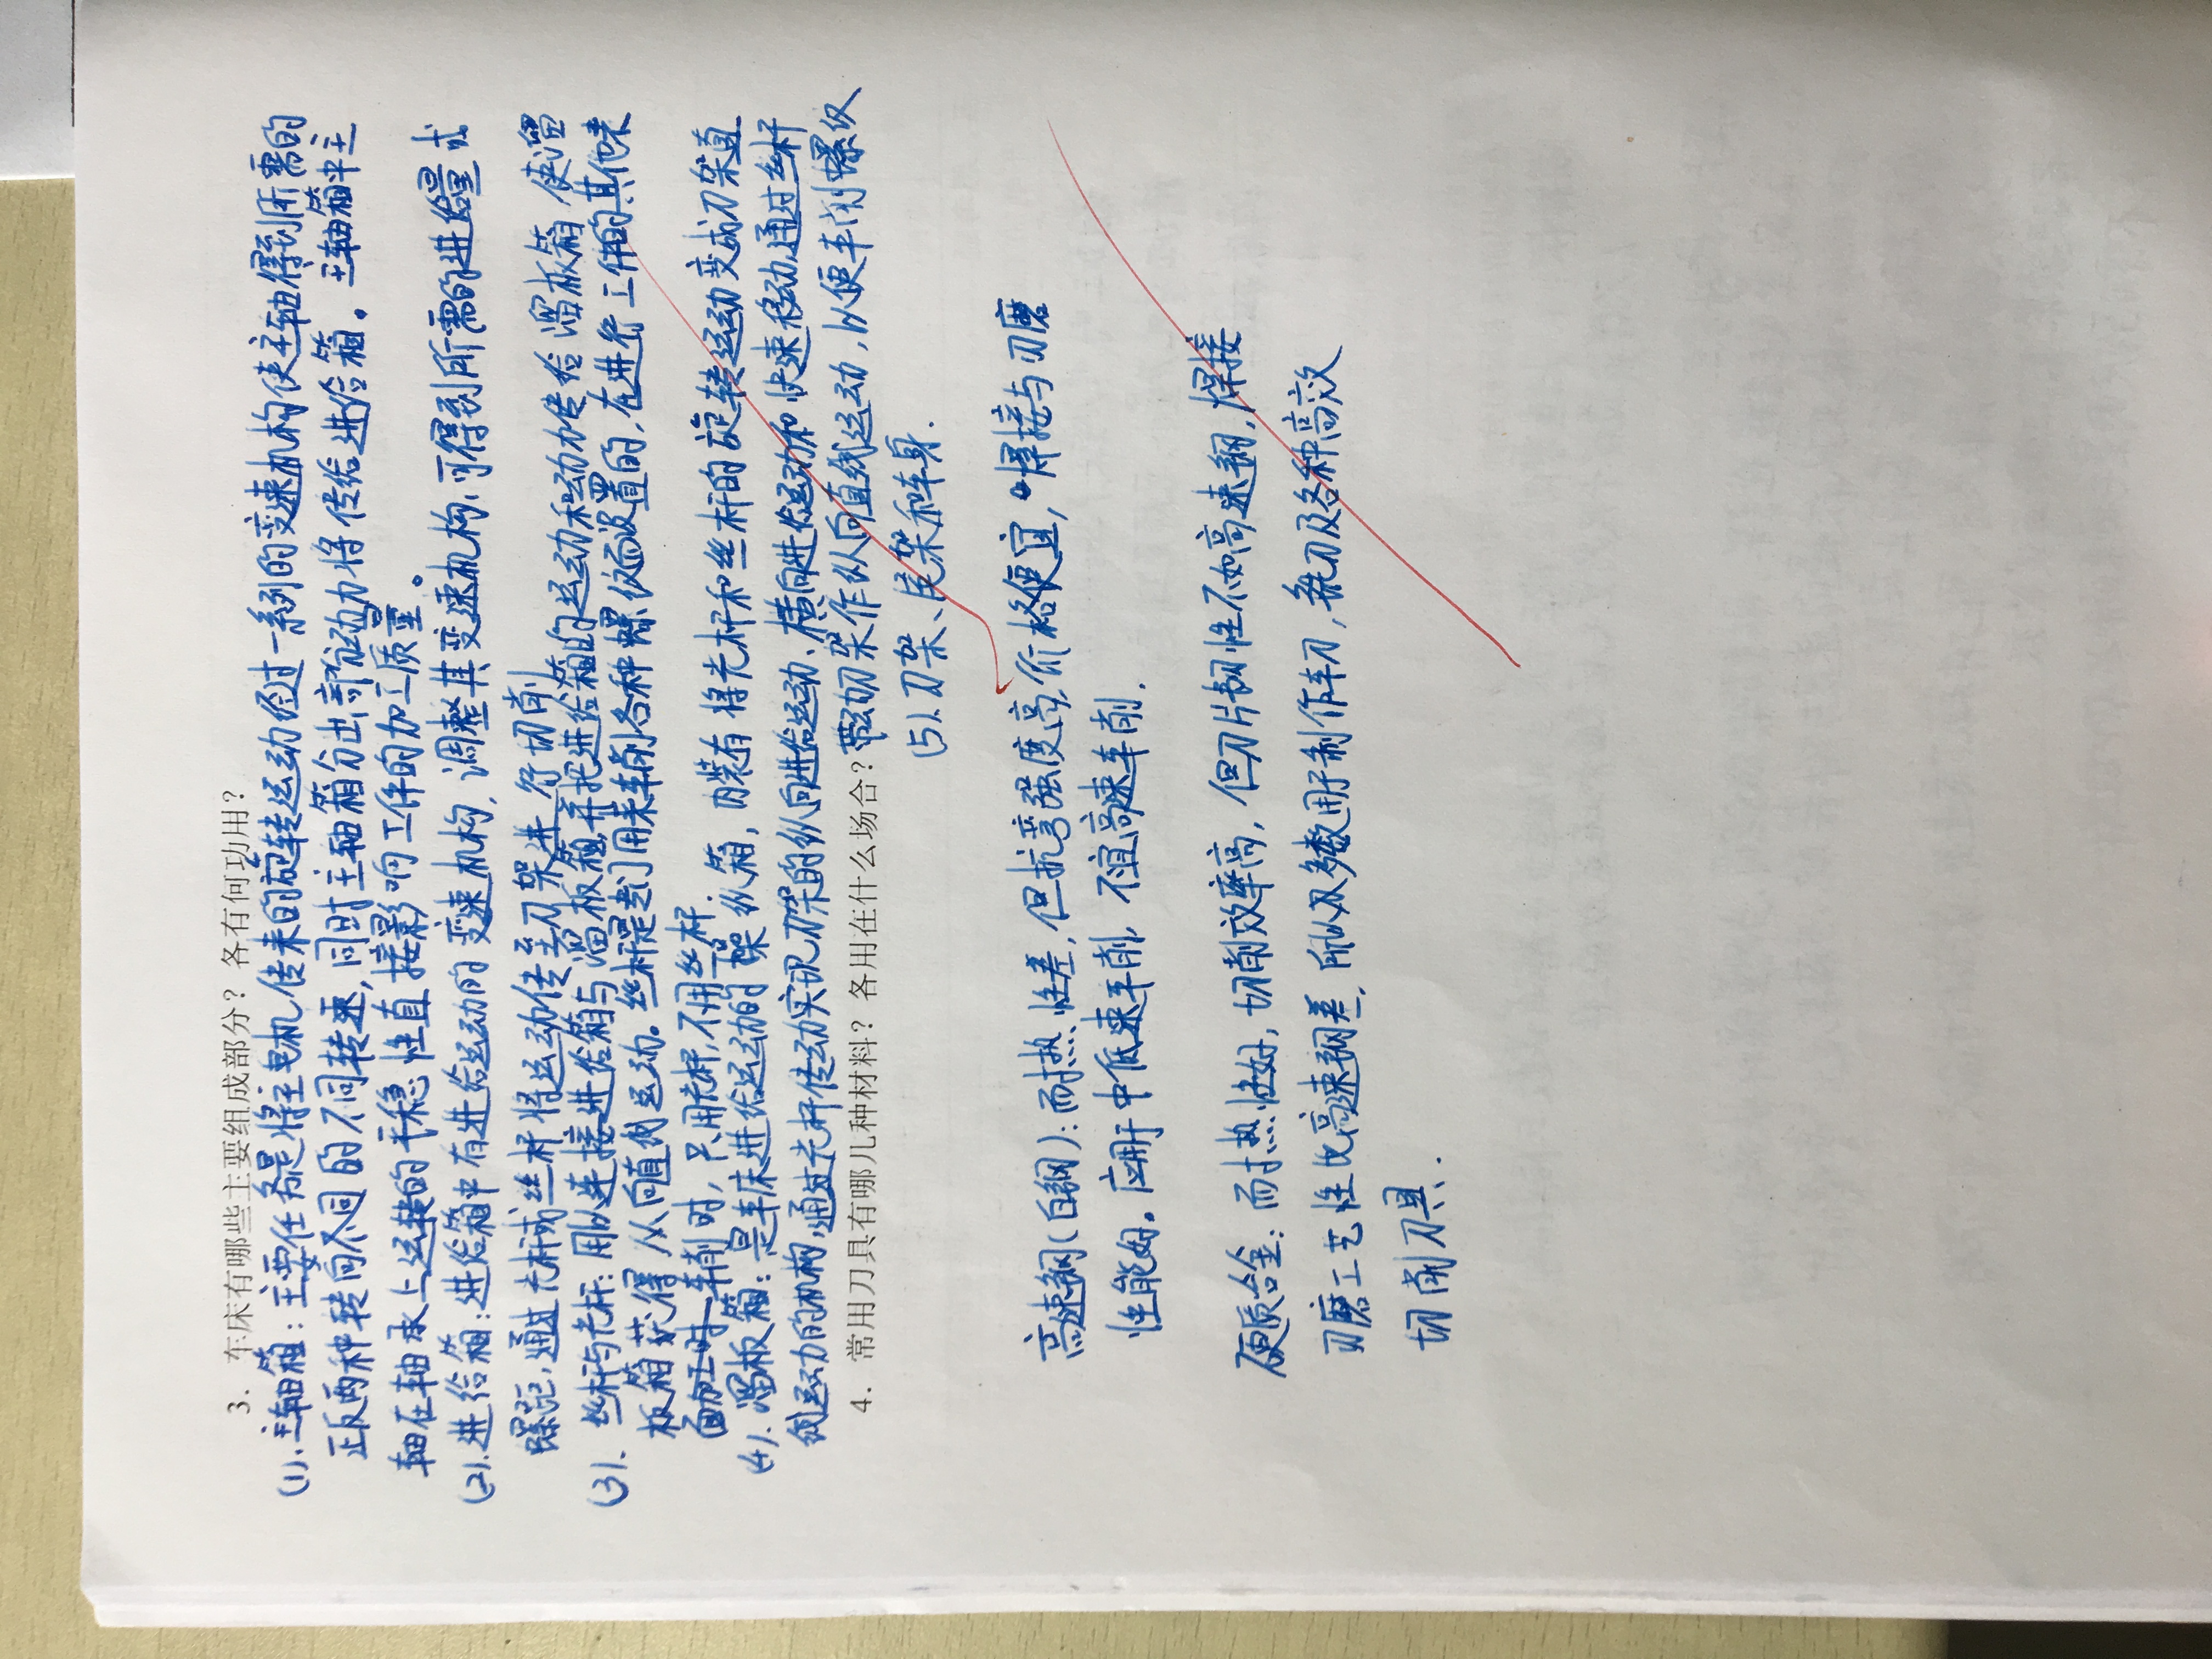 3. 车床有哪些主要组成部分？各有何功用？
(1). 主轴箱：主要任务是将主电机传来的旋转运动经过一系列的变速机构使主轴得到所需的
正反两种转向不同的不同转速，同时主轴箱分出部分动力将传给进给箱。主轴箱中主
轴在轴承上运转的平稳性直接影响工件的加工质量。
(2). 进给箱：进给箱中有进给运动的变速机构，调整其变速机构，可得到所需的进给量或
螺距，通过光杆或丝杆将运动传至刀架进行切削
(3). 丝杆与光杆：用以连接进给箱与溜板箱，并把进给箱的运动和动力传给溜板箱，使溜
板箱获得从向直线运动。丝杆是专门用来车削各种螺纹而设置的，在进行工件的其他表
面加工时车削时，只用光杆，不用丝杆.
(4). 溜板箱：是车床进给运动的操纵箱，内装有将光杆和丝杆的旋转运动变成刀架直
线运动的机构，通过光杆传动实现刀架的纵向进给运动、横向进给运动和快速移动，通过丝杆
带动刀架作纵向直线运动，以便车削螺纹
(5). 刀架、尾架和车身.
4. 常用刀具有哪几种材料？各用在什么场合？
高速钢(白钢)：耐热性差，但抗弯强度高，价格便宜，焊接与刃磨
性能好。应用于中低速车削，不宜高速车削.
硬质合金：耐热性好，切削效率高，但刀片韧性不如高速钢，焊接
刃磨工艺性比高速钢差，所以多数用于制作车刀，铣刀及各种高效
切削刀具.